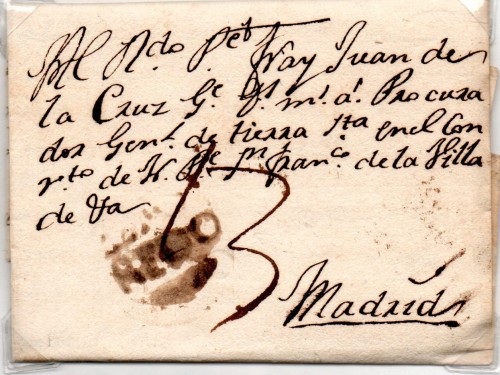 Al Rdo Pe Fray Juan de
la Cruz Ge Gs ms as Procura
dor Genl. de tierra Sta en el Con
vto de N. Pe Sn Franco de la Villa
de
13
Madrid